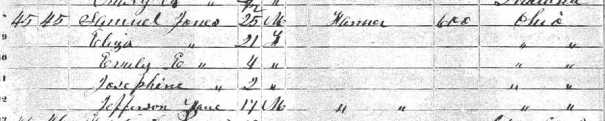 45 45 Samuel Jones 25 M Farmer 600 Ohio
9 Eliza " 21 F " "
Emily E " 4 " " "
Josephine " 2 " " "
2 Jefferson Lane 17 M " " " "